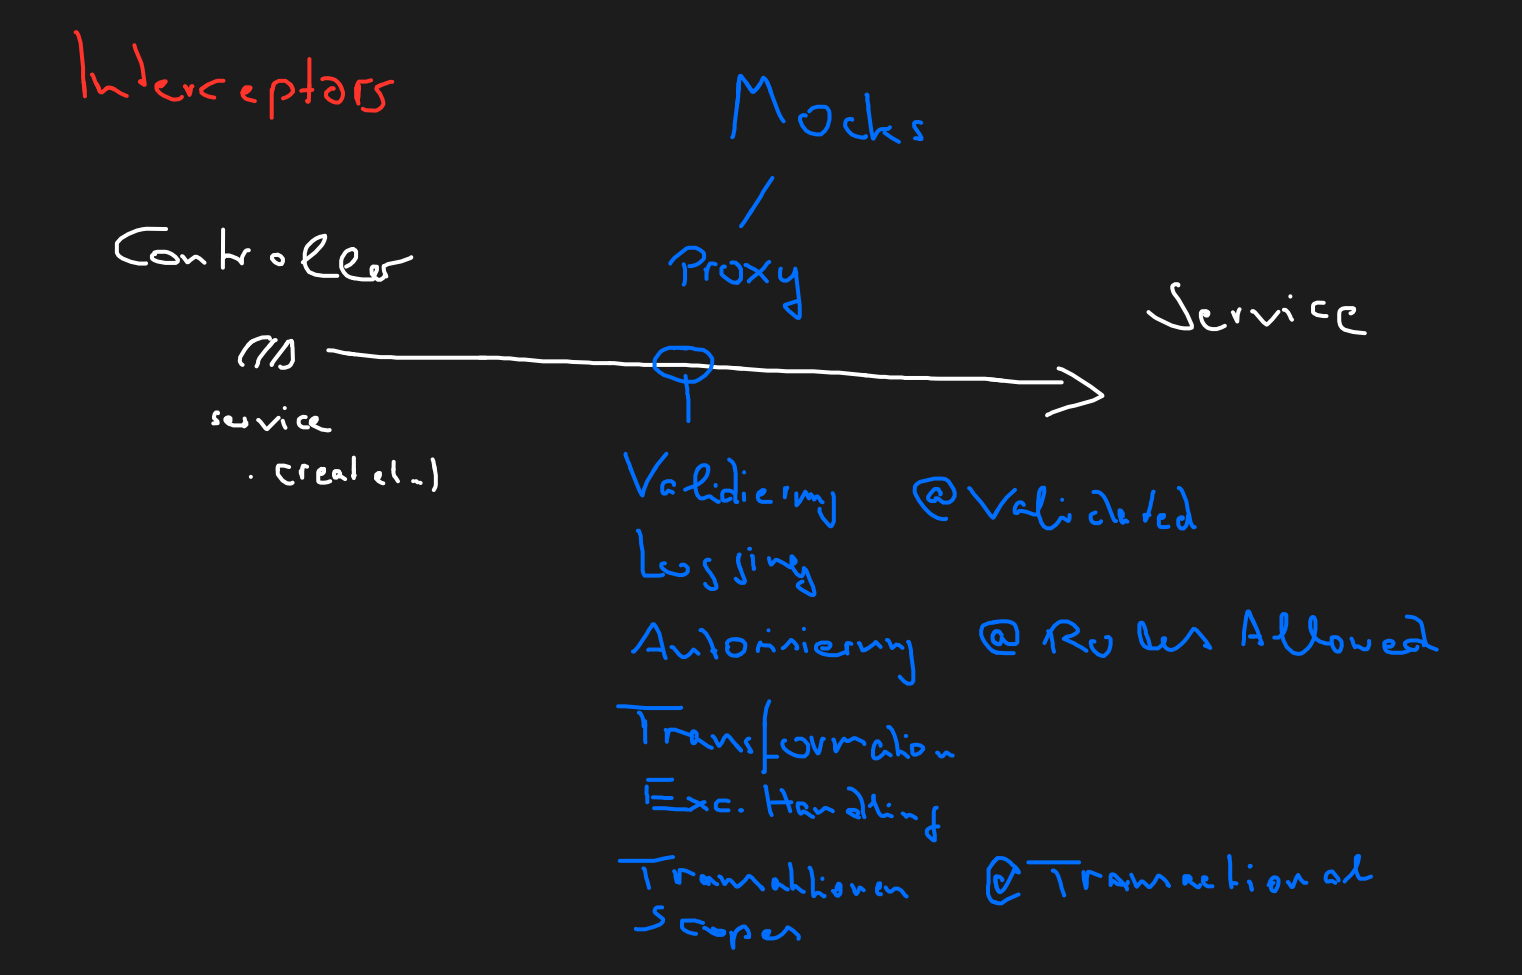 Interceptors
Mocks
Proxy
Controller
Service
service
. create(..)
Validierung @Validated
Logging
Autorisierung @RolesAllowed
Transformation
Exc. Handling
Transaktionen @Transactional
Scopes